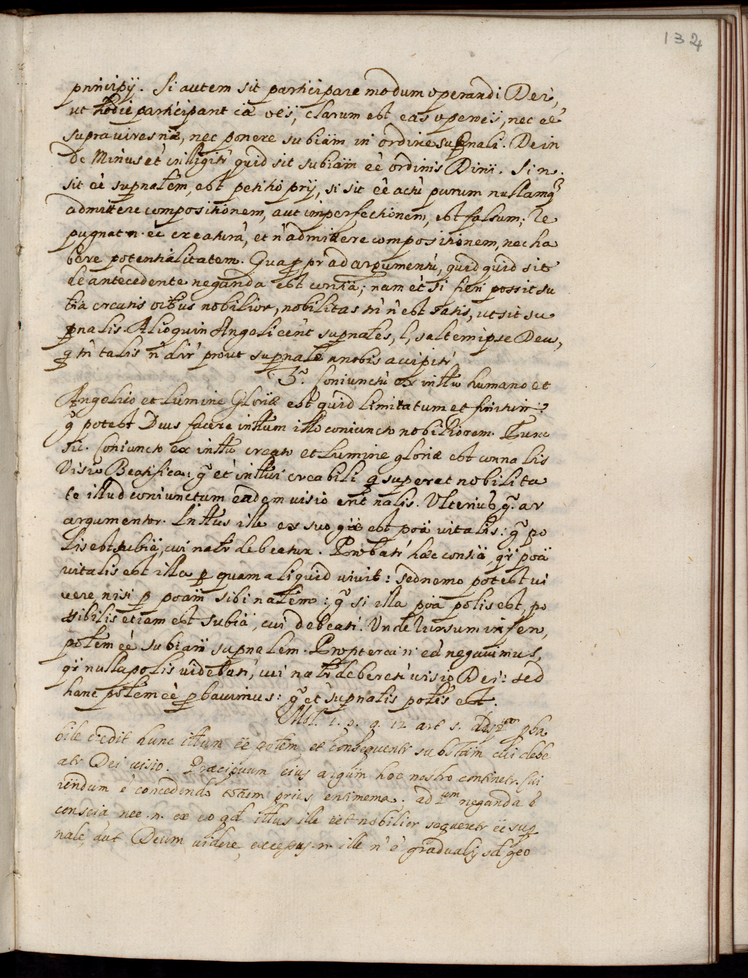 132
principij. Si autem sit participare modum operandi Dei,
ut hodie participant eã oẽs, clarum est eas operẽs, nec eẽ
supra vires nã, nec ponere subiãm in ordine supñali. Dein
de Minus et intligitr quid sit subiãm eẽ ordinis Divi. Si n.
sit eẽ supñalem, est petitio prij, si sit eẽ actũ purum nullamq3
admittere compositionem, aut imperfectionem, est falsum; re
pugnat n. eẽ creaturã, et ñ admittere compositionem, nec ha
bere potentialitatem. Quã pr ad argumentũ, quidquid sit
de antecedente neganda est conã; nam et si fieri possit su
btia creatis oĩbus nobilior, nobilitas tñ ñ est satis, ut sit su
pñalis. Alioquin Angeli eẽnt supñales, l, saltem ipse Deus,
q tñ talis ñ dir prout supñale a nobis accipitr
3º. Coniunctũ ex intũ humano et
Angelico et Lumine Gloriæ est quid limitatum et finitum:
gº potest Deus facere intũm illo coniuncto nobiliorem. Tunc
sic. Coniuncto ex intũ creato et Lumine gloriæ est connalis
Visio Beatifica: gº et intũi creabili q superet nobilita
te illud coniunctum eadem visio erit ñalis. Ulterius gº. ar
argumentor. Inttus ille ex suo gñe est poã vitalis: gº po
lis est subiã, cui natr debeatur. Probatr hæc consã, qr poã
vitalis est illa p quam aliquid vivit: sed nemo potest vi
vere nisi p poam sibi natem: gº si illa poã polis est, po
ssibilis etiam est subiã, cui debeatr. Unde rursum infero,
potem eẽ subiam supñalem. Propterea n. eã negavimus,
qr nulla polis videbatr, cui natr deberetr visio Dei: sed
hanc potem eẽ pbavimus: gº et supñalis potis est.
1. p. q. 12 art 5.
bile credit hunc ittum eẽ potem et consequentr substãm cui debe
atr Dei visio. Præcipuum eius argũm hoc nostro continetr. Sui
endum e concedendo totum prius entimema; ad 2em neganda ẽ
conseia nec n. ex eo qd ittus ille eẽt nobilior sequeretr eẽ sup
nalẽ aut Deum videre, excessus n. ille ñ ẽ gradualis sd geo